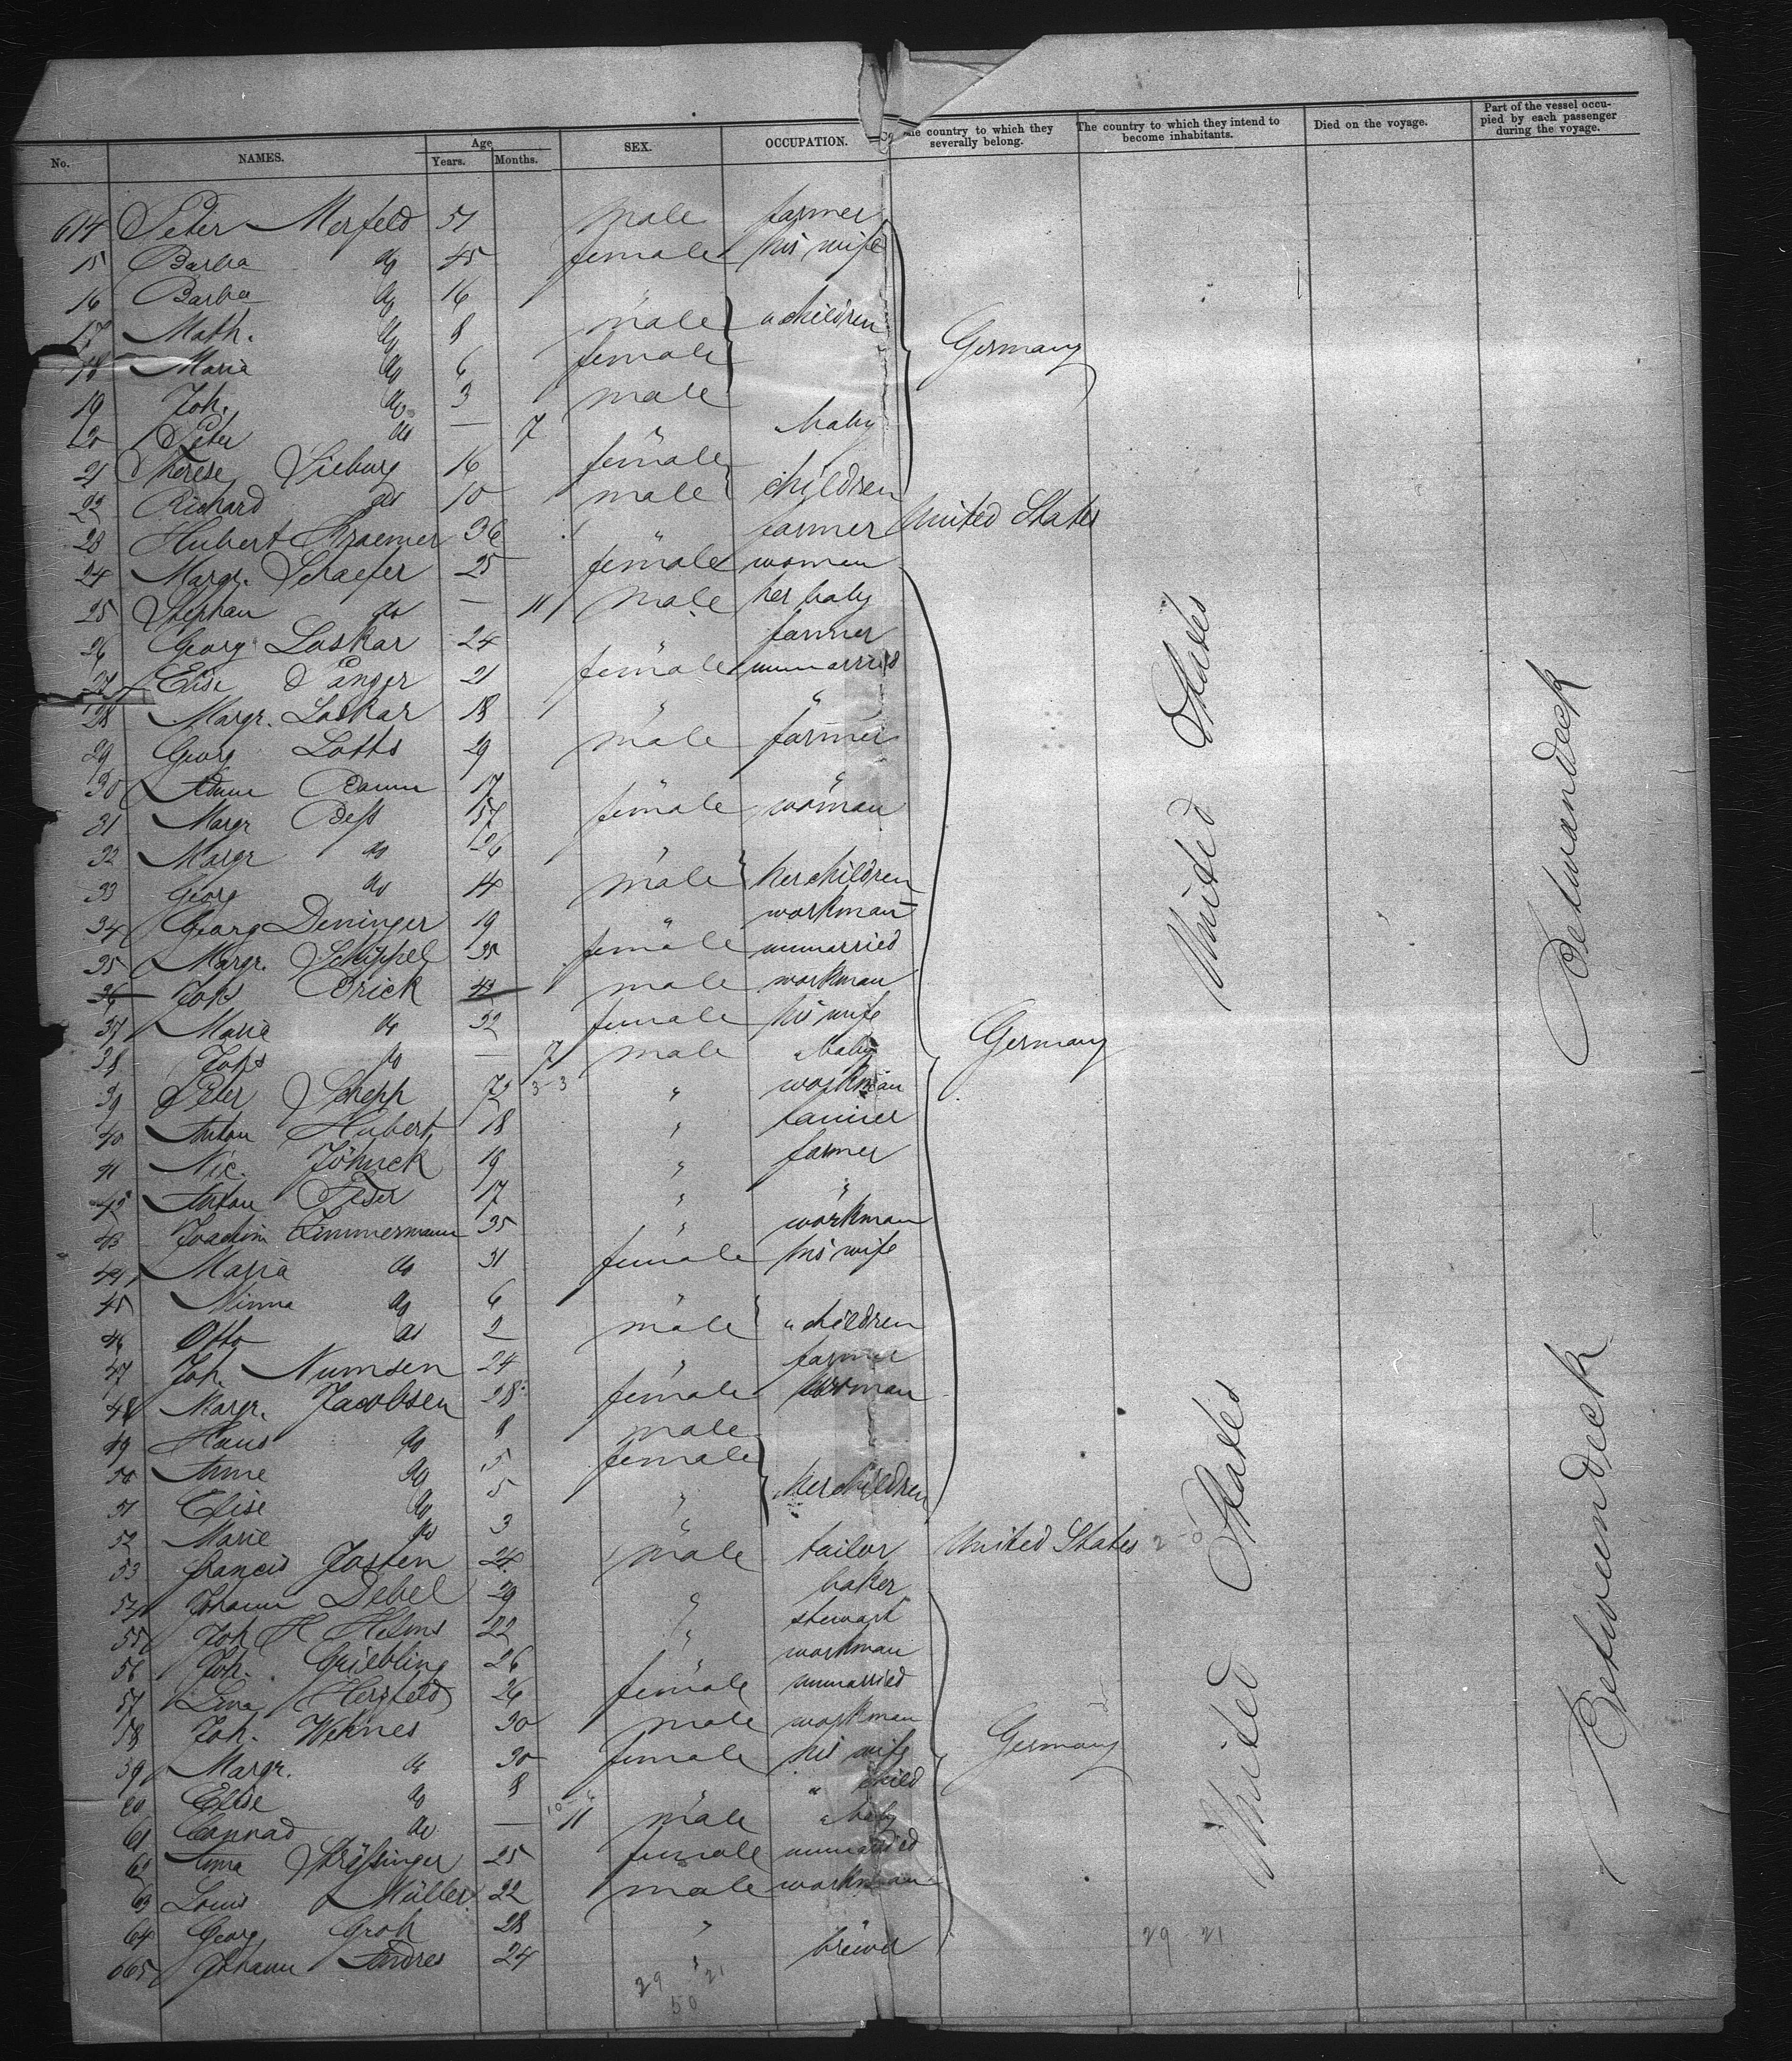 No. NAMES. Age Years. Months. SEX. OCCUPATION. The country to which they severally belong. The country to which they intend to become inhabitants. Died on the voyage. Part of the vessel occupied by each passenger during the voyage.
614 Peter Merfeld 51 male farmer
15 Barba do 45 female his wife
16 Barba do 16 "
17 Math. do 8 male " children
18 Maria do 6 female Germany
19 Joh. do 3 male
20 Peter do — 7 " baby
21 Therese Sieburg 16 female
22 Richard do 10 male children
23 Hubert Kraemer 36 " farmer United States
24 Margr. Schaefer 25 female women
25 Stephan do — 11 male her baby
26 Georg Laskar 24 " farmer
27 Elise Dänger 21 female unmarried
28 Margr. Laskar 18 " "
29 Georg Lotts 29 male farmer
30 17 "
31 Margr 57 female woman
32 Margr do 26 "
33 Georg do 14 male her children
34 Georg Deninger 19 " workman
35 Margr. Schippel 35 female unmarried
36 Johs Brick 43 male workman
37 Maria do 32 female his wife
38 Johs do — 7 male " baby Germany
39 Peter Schepp 72 3-3 " workman
40 Anton Hubert 18 "
41 Nic. Föhnck 19 " farmer
42 Anton 17 " "
43 Joachim Zimmermann 35 " workman
44 Maria do 31 female his wife
45 Minna do 6 "
46 Otto do 2 male " children
47 Joh. Numsen 24 " farmer
48 Margr. Jacobsen 28 female woman
49 Hans do 8 male
50 Anne do 5 female
51 Elise do 5 " her children
52 Marie do 3 "
53 Francis Josten 24 male tailor United States
54 Johann Debel 29 " baker
55 Joh H Helms 22 " stewart
56 Joh. Griebling 26 " workman
57 Lina Hersfeld 26 female unmarried
58 Joh. Wehnes 30 male workman
59 Margr. do 30 female his wife Germany
60 Elise do 8 " " child
61 Conrad do — 11 male " baby
62 Anna Strössinger 25 female unmarried
63 Louis Müller 22 male workman
64 Georg Groh 28 " "
665 Johann Andres 24 " brewer
29 21
50
29 21
United States
United States
Betweendeck
Betweendeck